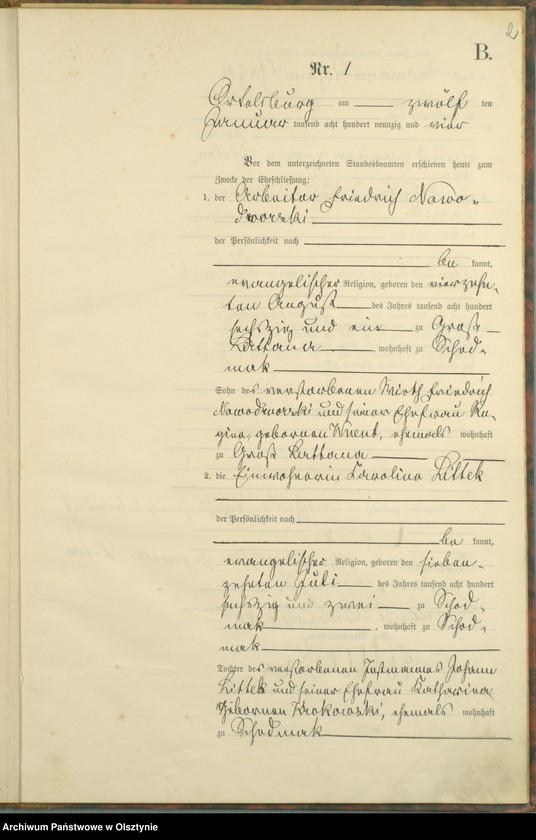 2
B.
Nr. 1
Ortelsburg am zwölf ten
Januar tausend acht hundert neunzig und vier
Vor dem unterzeichneten Standesbeamten erschienen heute zum
Zwecke der Eheschließung:
1. der Arbeiter Friedrich Nawo-
dworski
der Persönlichkeit nach
be kannt,
evangelischer Religion, geboren den vierzehn-
ten August des Jahres tausend acht hundert
sechszig und ein zu Groß
Lattana, wohnhaft zu Schod-
mak
Sohn des verstorbenen Wirth Friedrich
Nawodworski und seiner Ehefrau Re-
gine, geborenen, ehemals wohnhaft
zu Groß Lattana
2. die Einwohnerin Caroline Littek
der Persönlichkeit nach
be kannt,
evangelischer Religion, geboren den sieben-
zehnten Juli des Jahres tausend acht hundert
sechszig und zwei zu Schod-
mak, wohnhaft zu Schod-
mak
Tochter des verstorbenen Instmannes Johann
Littek und seiner Ehefrau Katharina
geborenen Krokowski, ehemals wohnhaft
zu Schodmak
Archiwum Państwowe w Olsztynie